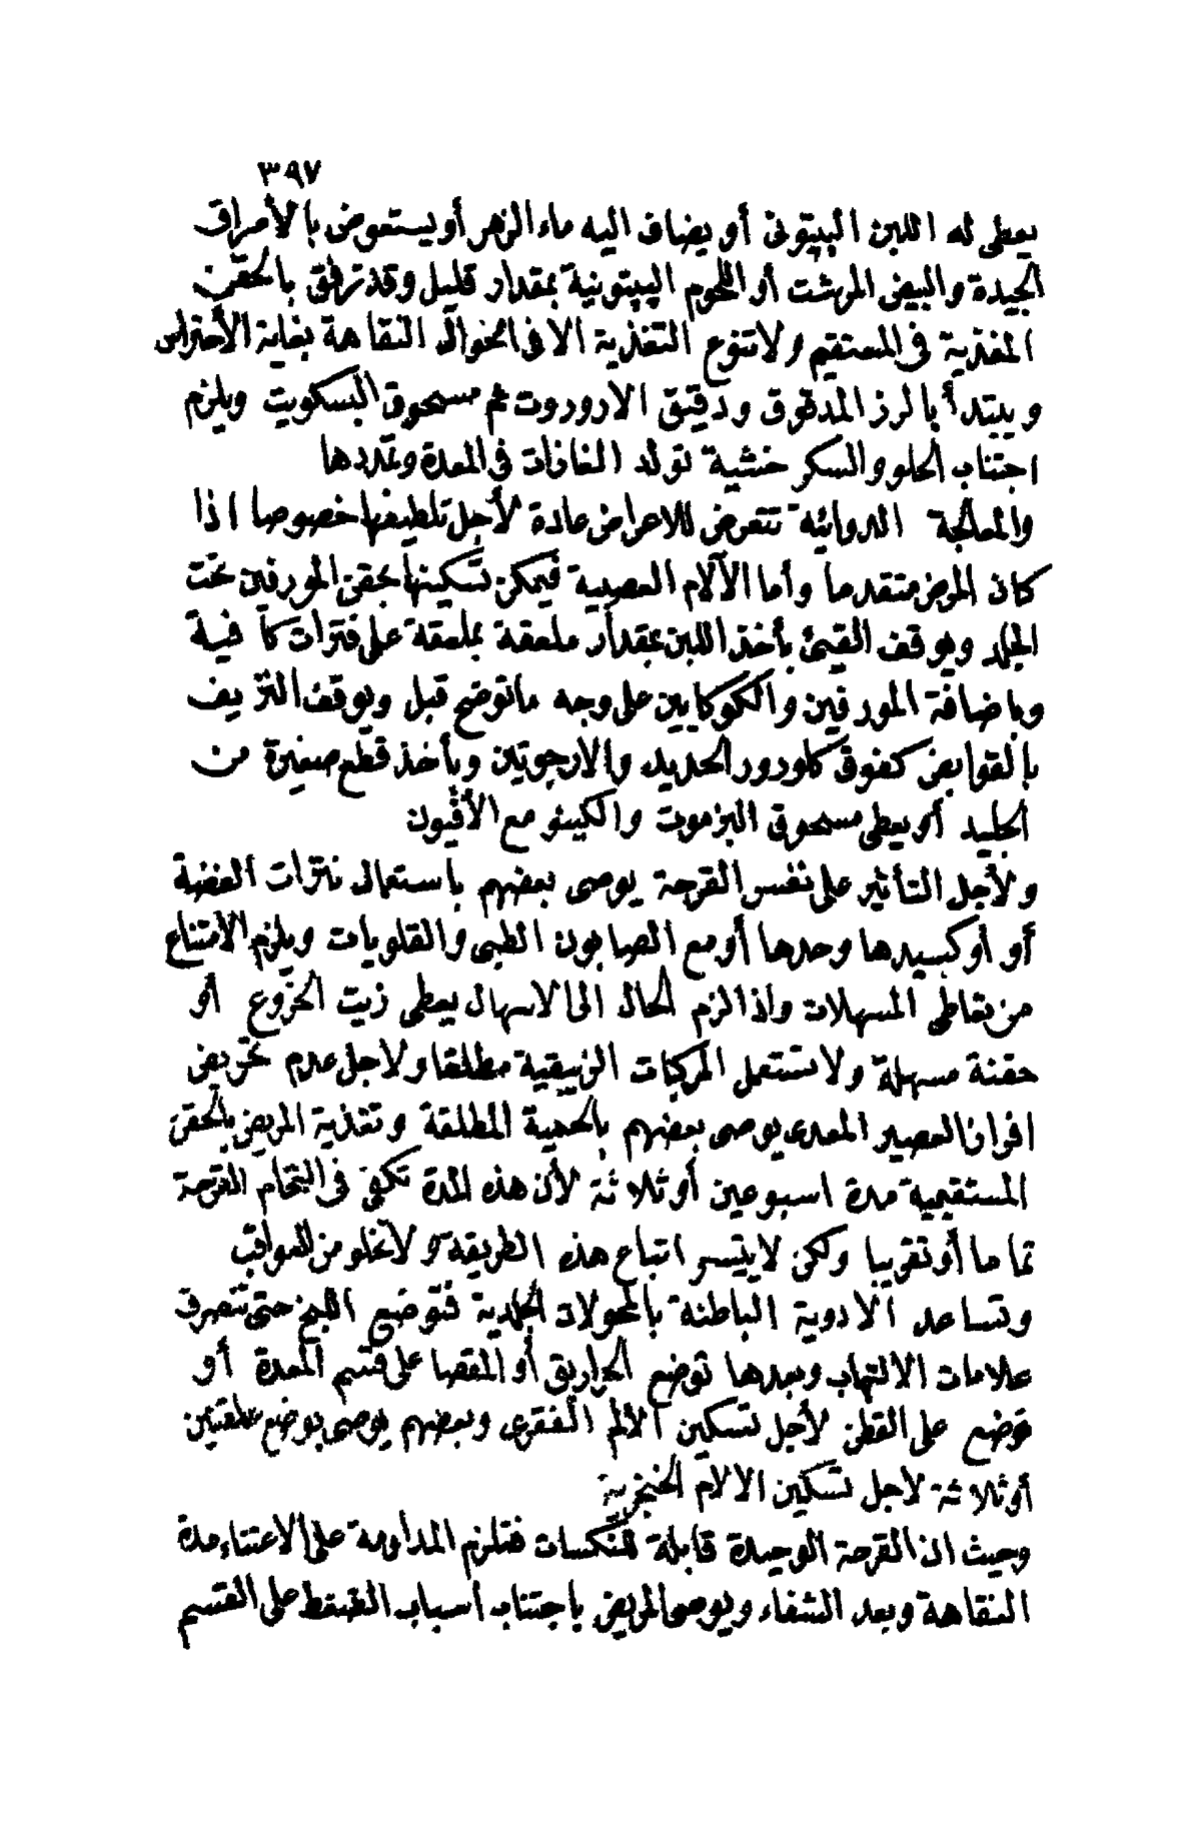 ٣٩٧
يعطى له اللبن الپپتونى أو يضاف اليه ماء الزهر أو يستعوض بالأمراق
الجيدة والبيض المرشت أو اللحوم الپپتونية بمقدار قليل وقد ترفق بالحقن
المغذية فى المستقيم ولا تنوع التغذية الا فى أحوال النقاهة بغاية الأحتراس
ويبتدأ بالرز المدقوق ودقيق الاروروت ثم مسحوق البسكويت ويلزم
اجتناب الحلو والسكر خشية تولد الغازات فى المعدة وتمددها
والمعالجة الدوائيه تتعرض للاعراض عادة لأجل تلطيفها خصوصا اذا
كان المرض متقدما وأما الآلام العصبية فيمكن تسكينها بحقن المورفين تحت
الجلد ويوقف القيئ بأخذ اللبن بمقدار ملعقة بملعقة على فترات كافية
وباضافة المورفين والكوكايين على وجه ماتوضح قبل ويوقف النزيف
بالقوابض كفوق كلورور الحديد والارجوتين وبأخذ قطع صغيرة من
الجليد أو يعطى مسحوق البزموت والكينو مع الأفيون
ولأجل التأثير على نفس القرحة يوصى بعضهم باستعمال نترات الفضة
أو أوكسيدها وحدها أو مع الصابون الطبى والقلويات ويلزم الامتناع
من تعاطى المسهلات واذا لزم الحال الى الاسهال يعطى زيت الخروع أو
حقنة مسهلة ولا تستعمل المركبات الزيبقية مطلقا ولاجل عدم تحريض
افراز العصير المعدى يوصى بعضهم بالحمية المطلقة وتغذية المريض بالحقن
المستقيمية مدة اسبوعين أو ثلاثة لأن هذه المدة تكفى فى التحام القرحة
تماما أو تقريبا ولكن لا يتيسر اتباع هذه الطريقة ولا تخلو من العواقب
وتساعد الادوية الباطنة بالمحولات الجلدية فتوضع اللبخ حتى تنصرف
علامات الالتهاب وبعدها توضع الحراريق أو المقصا على قسم المعدة أو
توضع على القطن لأجل تسكين الألم الفقرى وبعضهم يوصى بوضع علقتين
أو ثلاثة لاجل تسكين الالام الخنجرية
وحيث ان القرحة الوحيدة قابلة للنكسات فتلزم المداومة على الاعتناء مدة
النقاهة وبعد الشفاء ويوصى المريض باجتناب أسباب الضغط على القسم